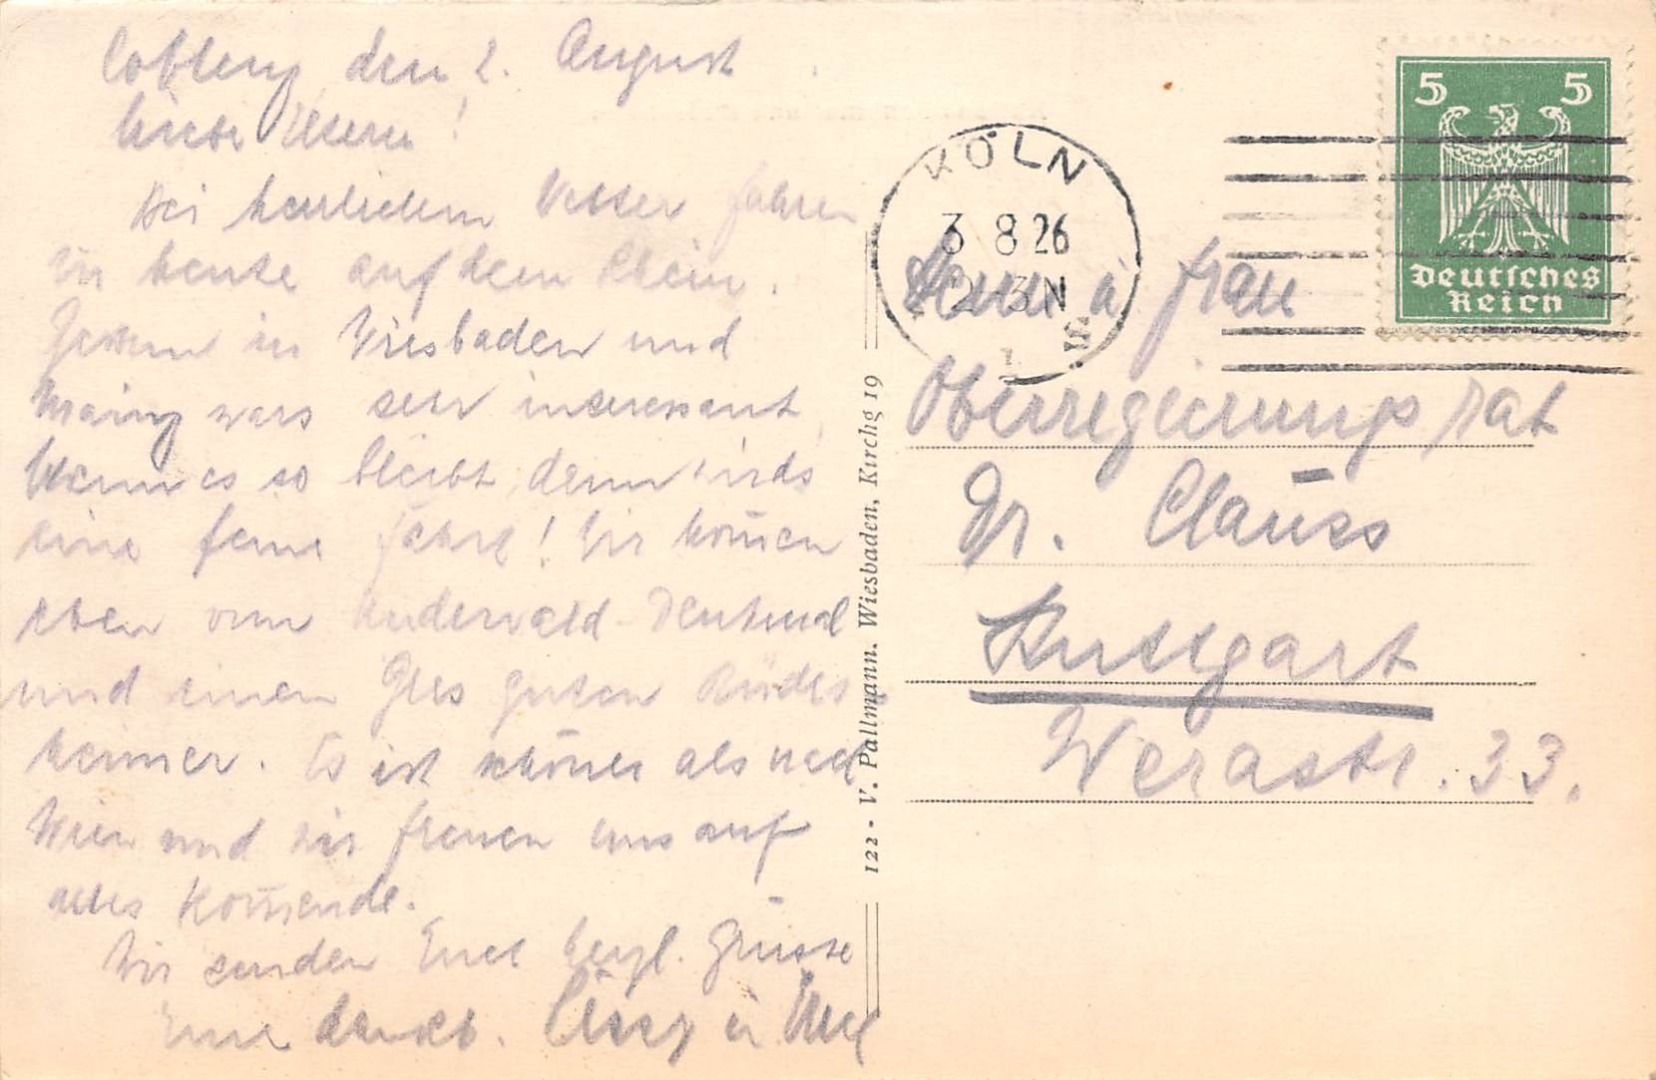 Coblenz, den 2. August
Liebe Eltern!
Bei herrlichem Wetter fahren
wir heute auf dem Rhein.
Gestern in Wiesbaden und
Mainz wars sehr interessant.
Wenn es so bleibt, dann wirds
eine feine Fahrt! Wir kom̄en
eben vom Niederwald-Denkmal
und einem Glas guten Rüdes-
heimer. Es ist schöner als nach
Wien und wir freuen uns auf
alles Kom̄ende.
Wir senden Euch herzl. Grüsse
Eure dankb. Cissy u
KÖLN
3 8 26
2-3 N
1
Herrn u Frau
Oberregierungsrat
Dr. Clauss
Stuttgart
Werastr. 33.
5 5
Deutsches
Reich
122 - V. Pallmann. Wiesbaden, Kirchg 19